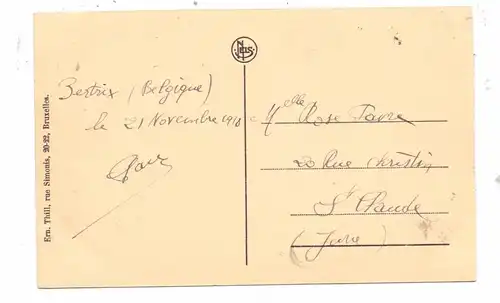 Bertrix (Belgique)
le 21 Novembre 1918
Melle Rose Favre
20 Rue Christin
St Claude
(Jura)
Ern. Thill, rue Simonis, 20-22, Bruxelles.
Nels